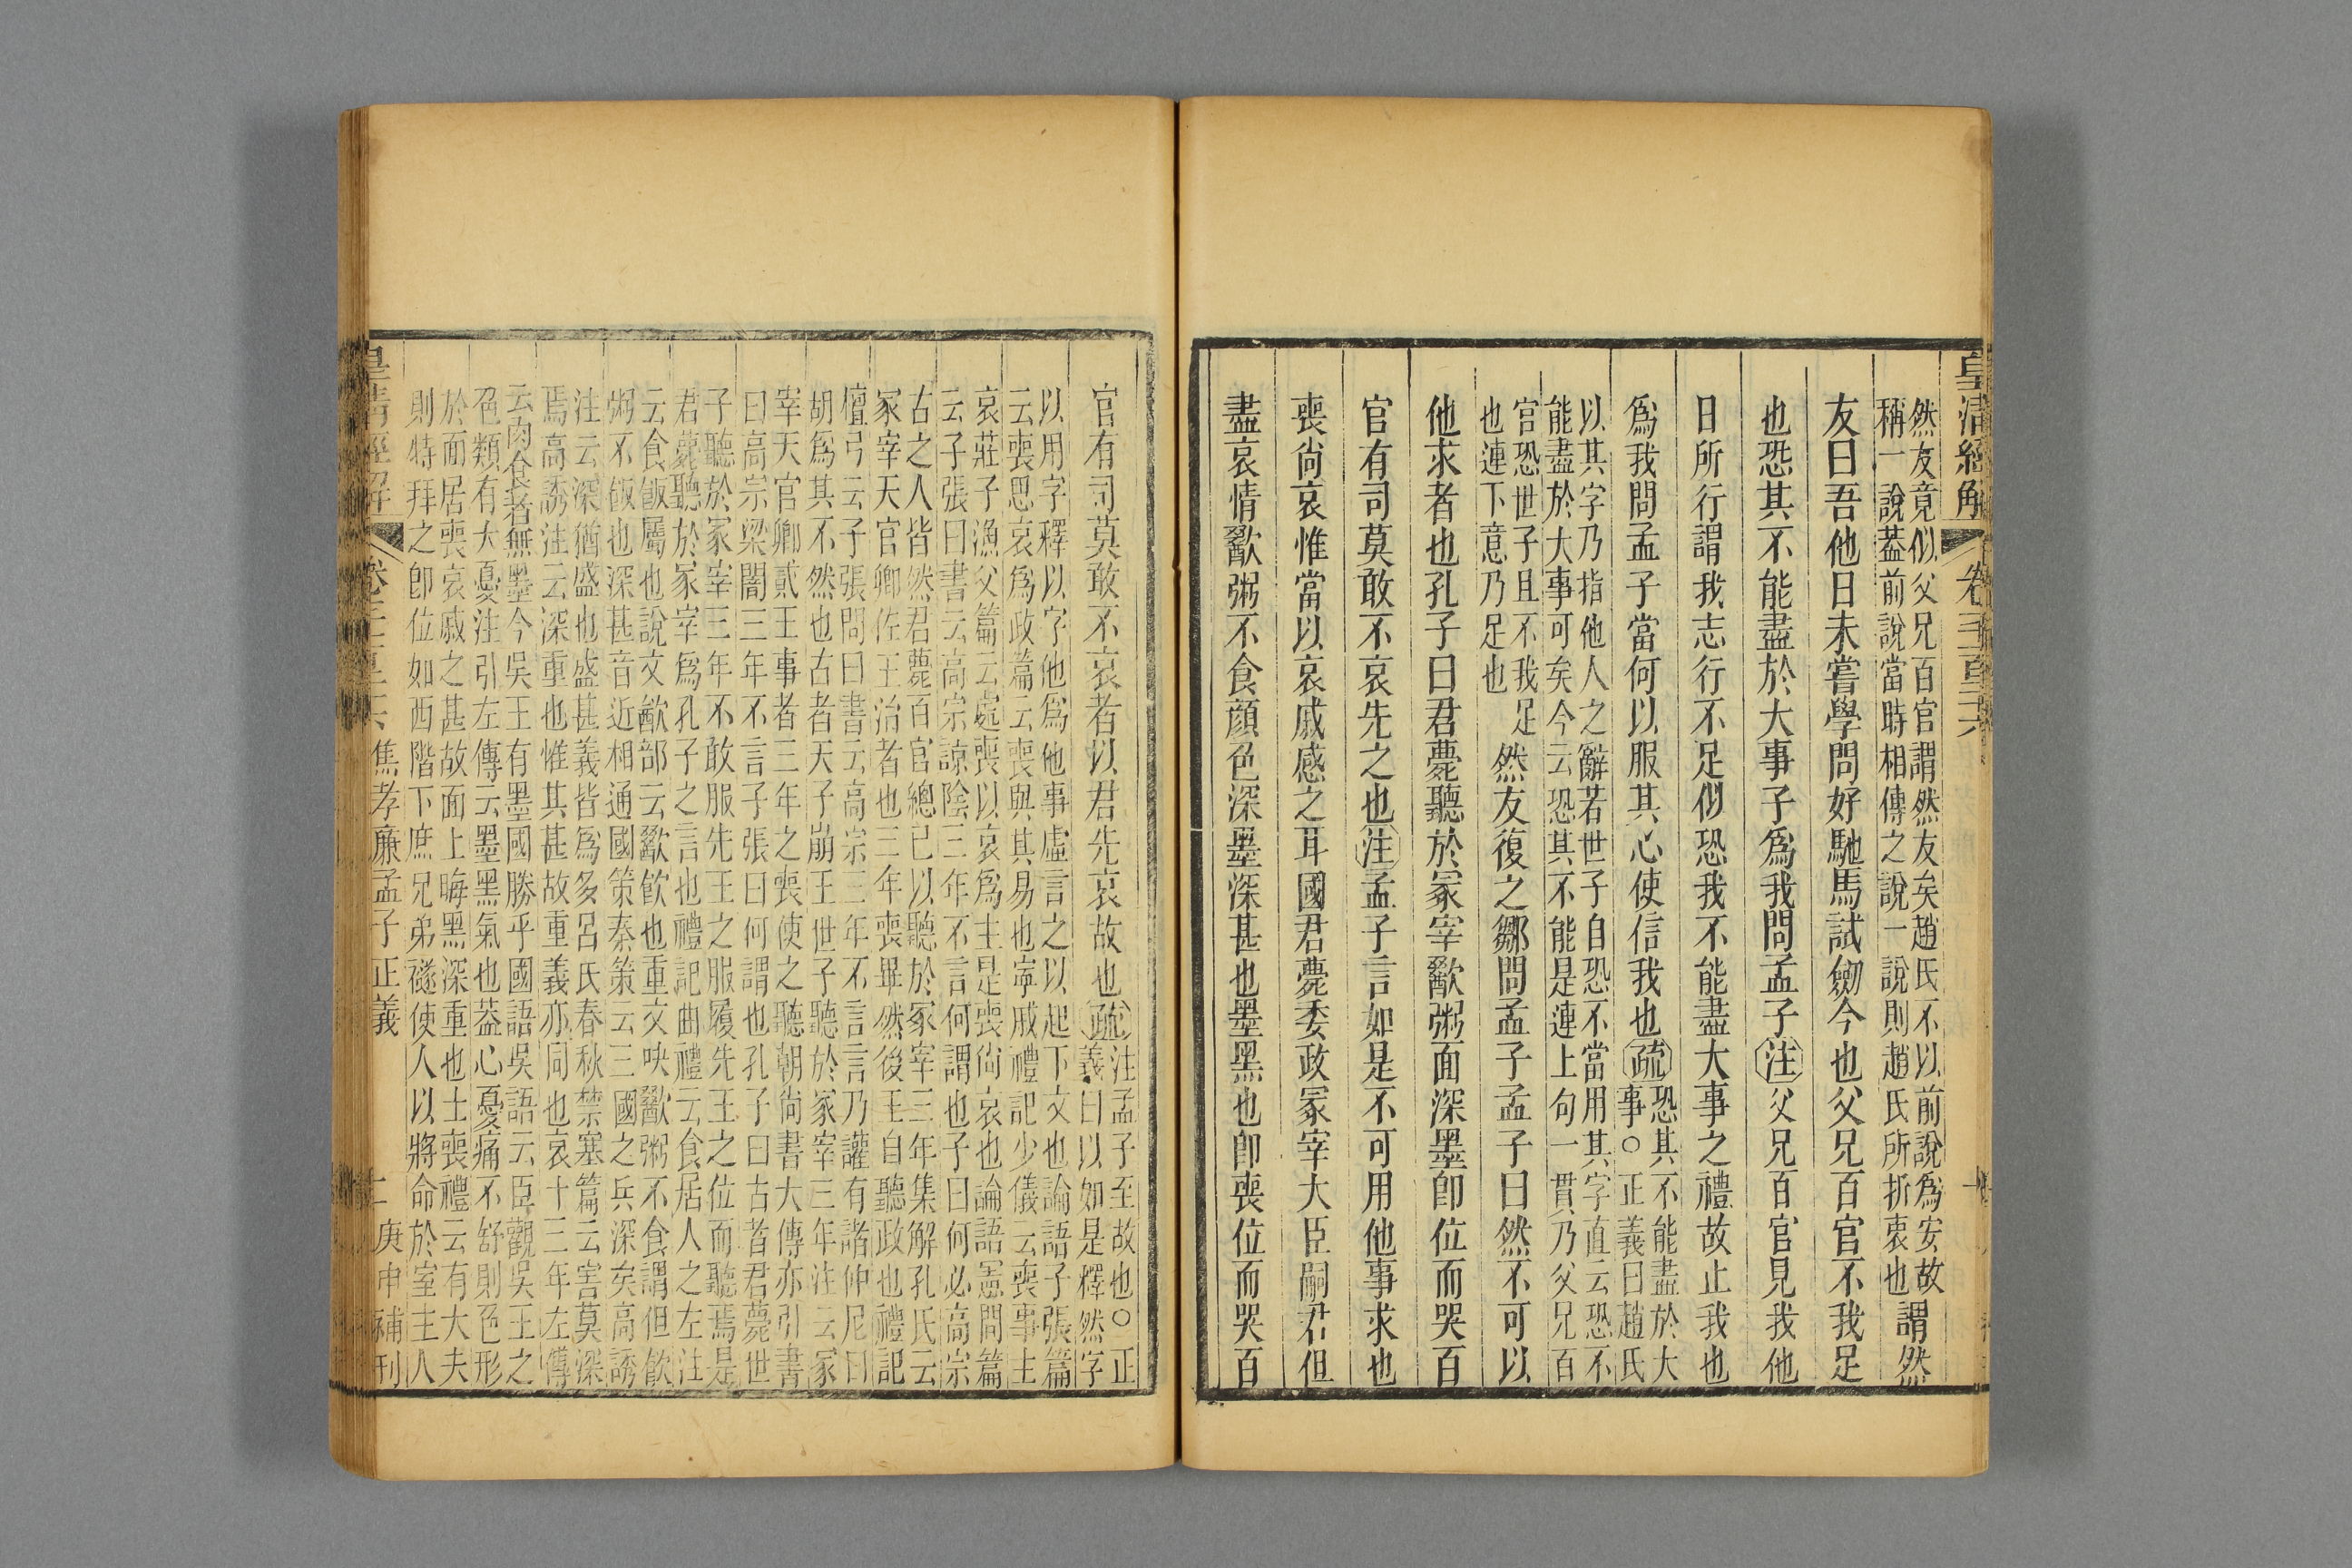 皇清經解
卷二百三十六
然友竟似父兄百官謂然友矣趙氏不以前說爲安故
稱一說葢前說當時相傳之說一說則趙氏所折衷也
謂然
友曰吾他日未嘗學問好馳馬試劒今也父兄百官不我足
也恐其不能盡於大事子爲我問孟子注父兄百官見我他
日所行謂我志行不足似恐我不能盡大事之禮故止我也
爲我問孟子當何以服其心使信我也疏
恐其不能盡於大
事○正義曰趙氏
以其字乃指他人之辭若世子自恐不當用其字直云恐不
能盡於大事可矣今云恐其不能是連上句一貫乃父兄百
官恐世子且不我足
也連下意乃足也
然友復之鄒問孟子孟子曰然不可以
他求者也孔子曰君薨聽於冢宰歠粥面深墨卽位而哭百
官有司莫敢不哀先之也注孟子言如是不可用他事求也
喪尙哀惟當以哀戚感之耳國君薨委政冢宰大臣嗣君但
盡哀情歠粥不食顔色深墨深甚也墨黑也卽喪位而哭百
官有司莫敢不哀者以君先哀故也疏
注孟子至故也○正
義曰以如是釋然字
以用字釋以字他爲他事虛言之以起下文也論語子張篇
云喪思哀爲政篇云喪與其易也寧戚禮記少儀云喪事主
哀莊子漁父篇云處喪以哀爲主是喪尙哀也論語憲問篇
云子張曰書云高宗諒陰三年不言何謂也子曰何必高宗
古之人皆然君薨百官總已以聽於冢宰三年集解孔氏云
冢宰天官卿佐王治者也三年喪畢然後王自聽政也禮記
檀弓云子張問曰書云高宗三年不言言乃讙有諸仲尼曰
胡爲其不然也古者天子崩王世子聽於冢宰三年注云冢
宰天官卿貳王事者三年之喪使之聽朝尙書大傳亦引書
曰高宗梁闇三年不言子張曰何謂也孔子曰古者君薨世
子聽於冢宰三年不敢服先王之服履先王之位而聽焉是
君薨聽於冢宰爲孔子之言也禮記曲禮云食居人之左注
云食飯屬也說文歠部云歠飮也重文吷歠粥不食謂但飮
粥不飯也深甚音近相通國策秦策云三國之兵深矣高誘
注云深猶盛也盛甚義皆爲多呂氏春秋禁塞篇云害莫深
焉高誘注云深重也惟其甚故重義亦同也哀十三年左傳
云肉食者無墨今吳王有墨國勝乎國語吳語云臣觀吳王之
色類有大憂注引左傳云墨黑氣也葢心憂痛不舒則色形
於面居喪哀戚之甚故面上晦黑深重也士喪禮云有大夫
則特拜之卽位如西階下庶兄弟襚使人以將命於室主人
皇清經解
焦孝廉孟子正義
二
庚申補刊